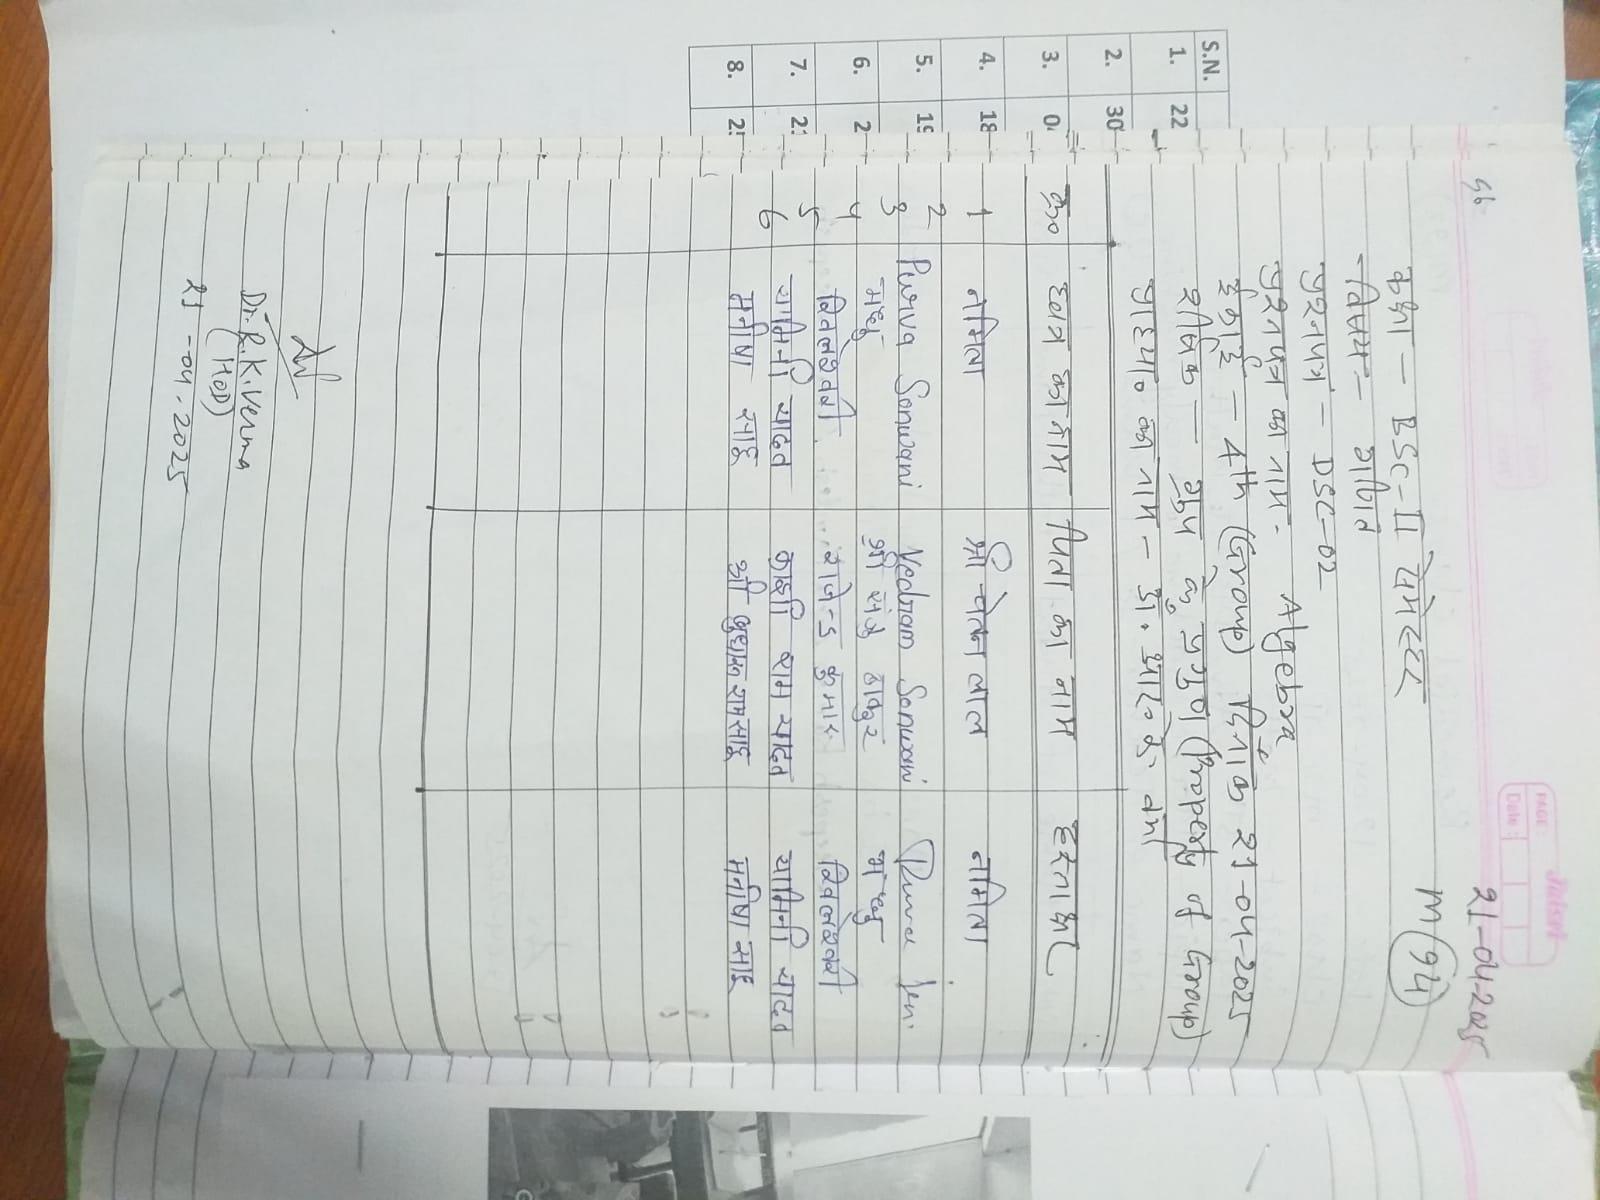 S.N.
1. 22
2. 30
3. 0
4. 18
5. 19
6. 2
7. 2
8. 2
56
PAGE:
Date:
21-04-2025
M 94
कक्षा - BSc-II सेमेस्टर
विषय - गणित
प्रश्नपत्र - DSC-02
प्रश्नपत्र का नाम - Algebra
इकाई - 4th (Group) दिनांक 21-04-2025
शीर्षक - ग्रुप के गुण (Property of Group)
प्राध्या० का नाम - डॉ. आर० के० वर्मा
क्र० छात्र का नाम पिता का नाम हस्ताक्षर
1 नमिता श्री चेतन लाल नमिता
2 Purva Sonwani Vedram Sonwani
3 मधु श्री संजू ठाकुर मधु
4 कुमार
5 यामिनी यादव राम यादव यामिनी यादव
6 मनीषा साहू श्री साहू मनीषा साहू
Dr. R.K. Verma
(HOD)
21-04-2025